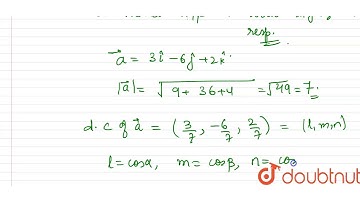 resp.
a⃗ = 3î - 6ĵ + 2k̂.
|a⃗| = √9 + 36 + 4 = √49 = 7.
d.c of a⃗ = (3/7, -6/7, 2/7) = (l, m, n)
l = cosα, m = cosβ, n = cos
doubtnut